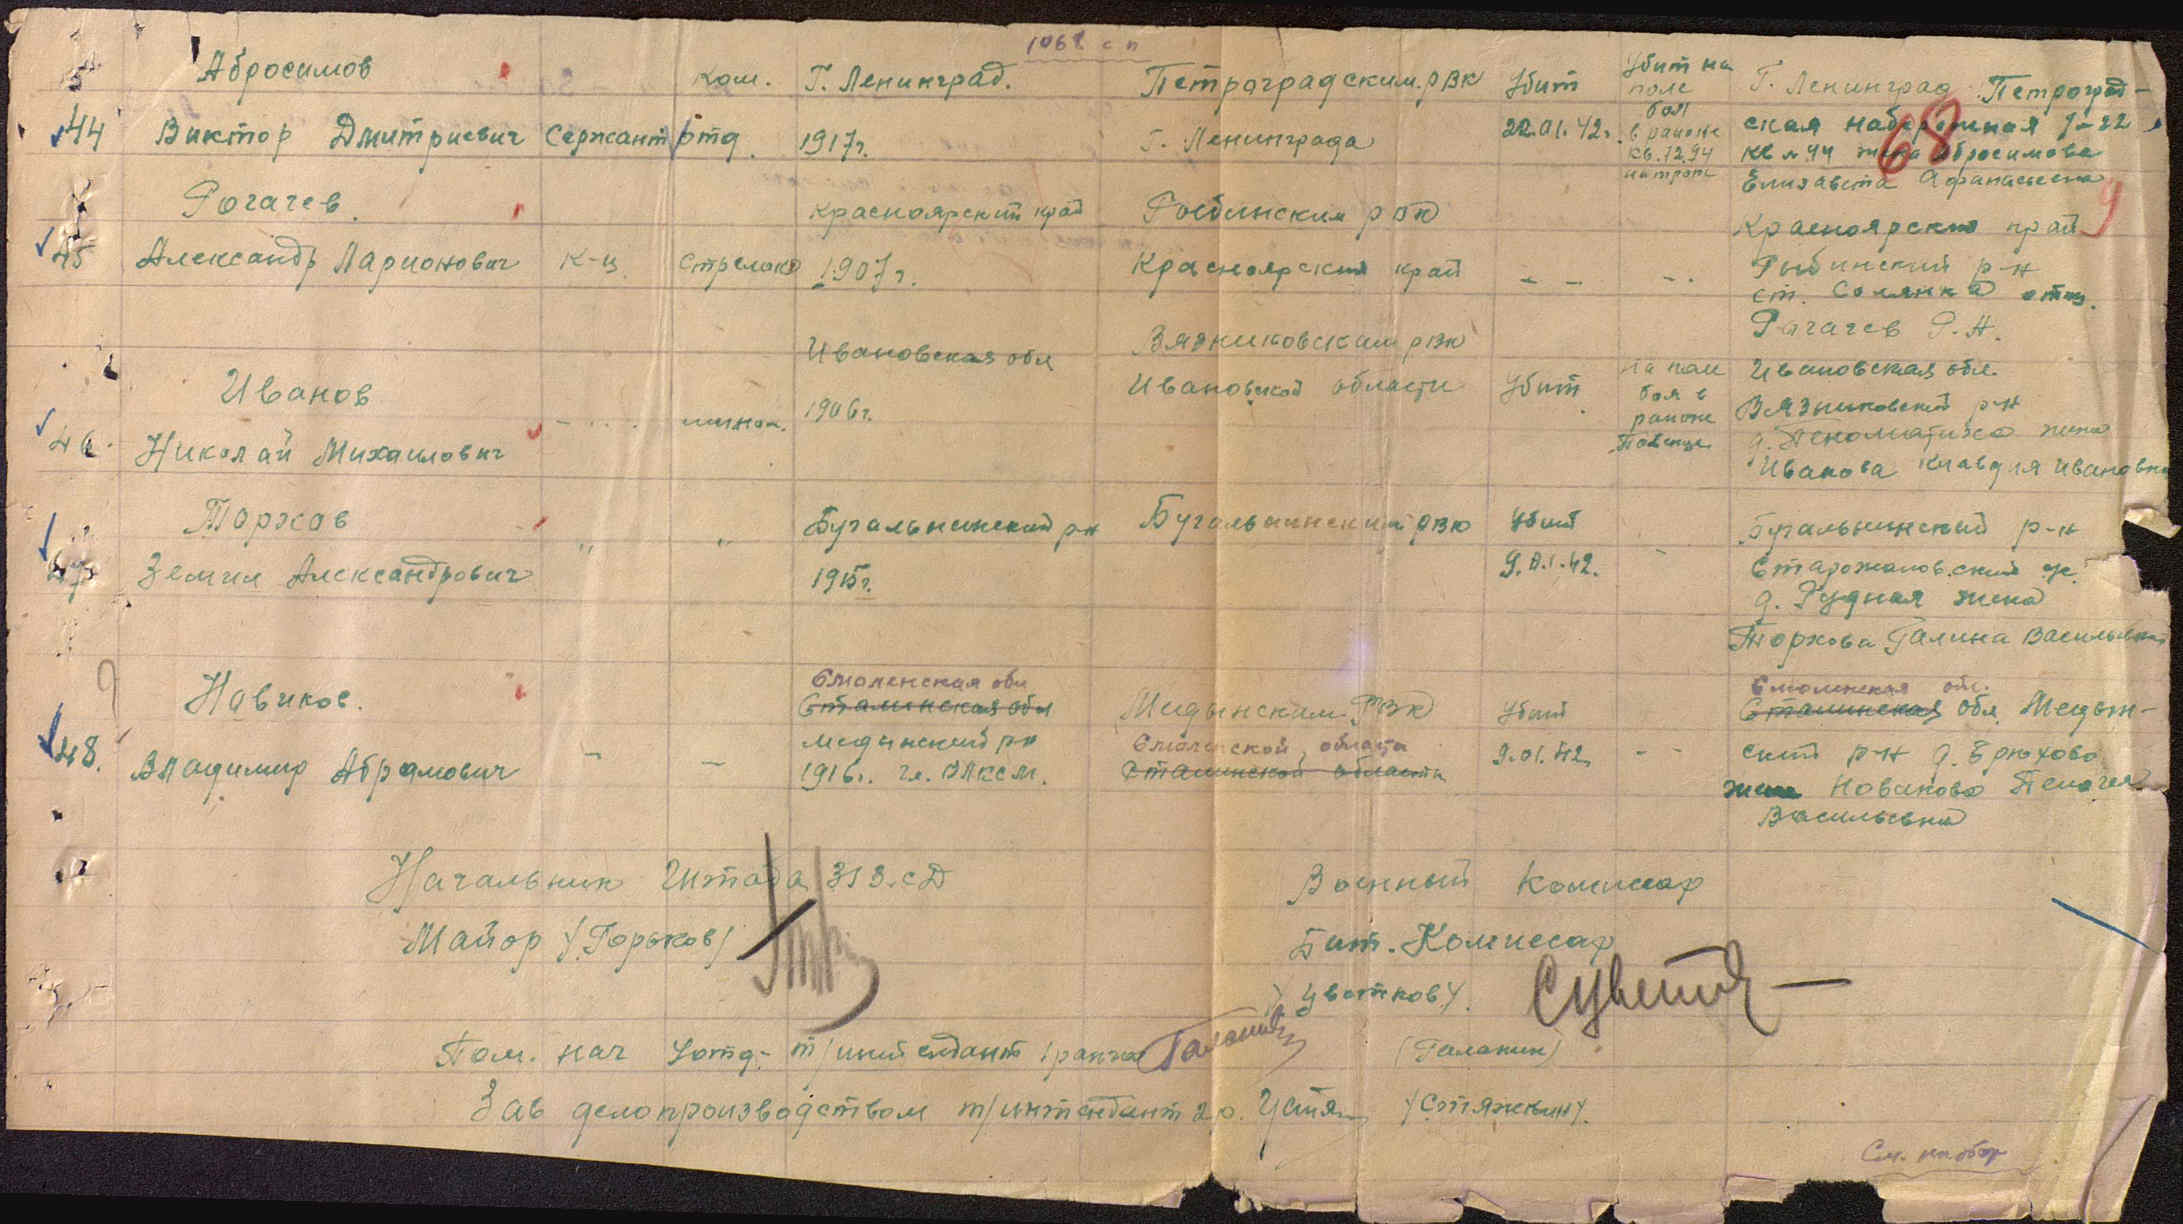 1068 с п
Абросимов Ком. Г. Ленинград. Петроградским. РВК Убит Убит на поле боя в районе кв. 12.94 Г. Ленинград Петроград-
44 Виктор Дмитриевич Сержант отд. 1917г. г. Ленинграда 22.01.42г. ская набережная 7-22
кв № 44 жена Абросимова
Елизавета Афанасьевна
68
9
Рогачев. Красноярский край Рыбинским РВК Красноярский край
45 Александр Ларионович К-ц. Стрелок 1907г. Красноярский край - - - - Рыбинский р-н
ст. Солянка отец.
Рогачев Р. Н.
Ивановская обл Вязниковским рвк
Иванов 1906г. Ивановской области Убит. на поле боя в районе Повенца Ивановская обл.
46. Николай Михаилович - . . . . мином. Вязниковский р-н
д. жена
Иванова Клавдия Ивановна
Торхов " " Бугальнинский р-н Бугальнинский РВК Убит - Бугальнинский р-н
47 Александрович 1915г. 9.01.42.
д. Рудная жена
Торхова Галина Васильевна
Новиков. Смоленская обл Смоленская обл.
Сталинская обл Медынским РВК Убит Сталинская обл. Медын-
48. Владимир Абрамович - - Медынский р-н Смоленской области 9.01.42 - - ский р-н д. Брюхово
1916г. чл. ВЛКСМ. Сталинской области жена Новикова Пелагея
Васильевна
Начальник Штаба 313. сд Военный Комиссар
Майор /Горьков/ Бат. Комиссар
/Цветков/.
Пом. нач 4 отд- т/интендант 1 ранга (Галанин)
Зав делопроизводством т/интендант 2 р. /Стяжкин/.
См. на обор